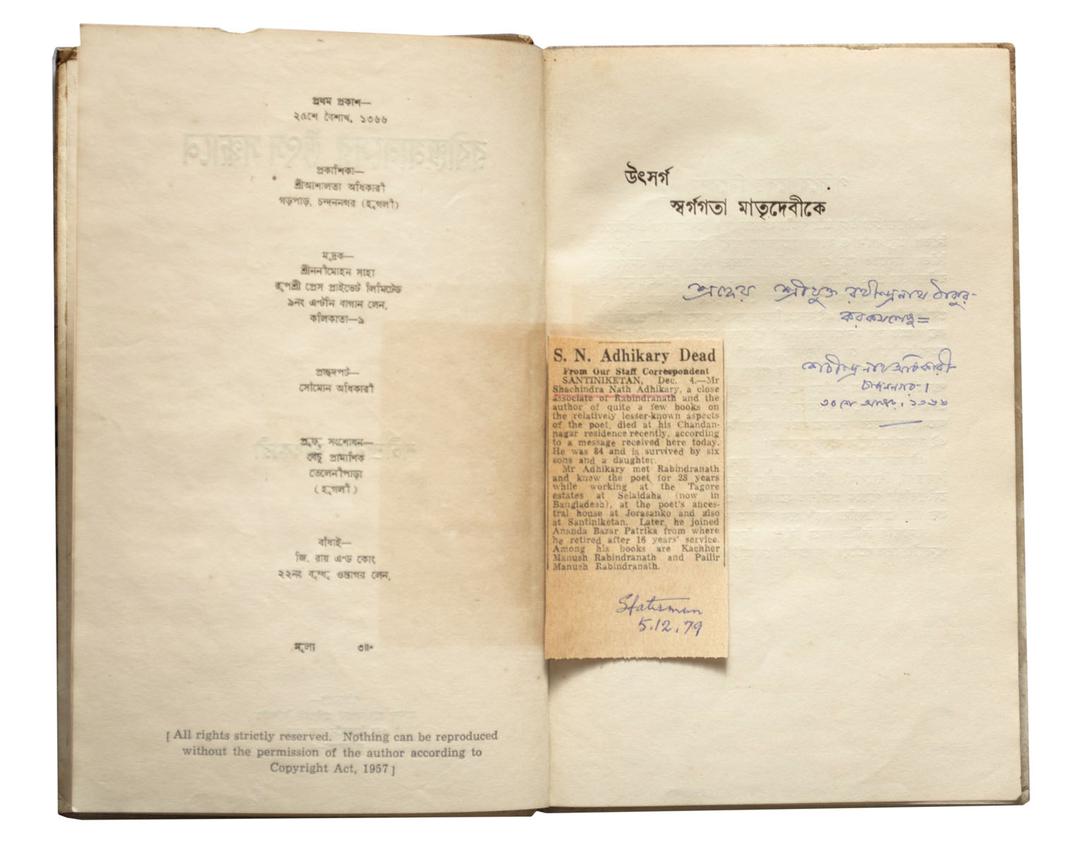 প্রথম প্রকাশ—
২৫শে বৈশাখ, ১৩৬৬
প্রকাশিকা—
শ্রীআশালতা অধিকারী
গড়পাড়, চন্দননগর (হুগলী)
মুদ্রক—
শ্রীননীমোহন সাহা
রূপশ্রী প্রেস প্রাইভেট লিমিটেড
৯নং এণ্টনি বাগান লেন,
কলিকাতা-৯
প্রচ্ছদপট—
সৌমেন অধিকারী
প্রুফ্ সংশোধন—
বেচু প্রামাণিক
তেলেনীপাড়া
(হুগলী)
বাঁধাই—
জি, রায় এন্ড কোং
২২নং বুদ্ধু ওস্তাগর লেন,
মূল্য ৩৷৷০
[ All rights strictly reserved. Nothing can be reproduced
without the permission of the author according to
Copyright Act, 1957 ]
উৎসর্গ
স্বর্গগতা মাতৃদেবীকে
শ্রদ্ধেয় শ্রীযুক্ত রথীন্দ্রনাথ ঠাকুর-
করকমলেষু=
শচীন্দ্রনাথ অধিকারী
চন্দননগর।
৩০শে ১৩৬৬
S. N. Adhikary Dead
From Our Staff Correspondent
SANTINIKETAN, Dec. 4.—Mr
Shachindra Nath Adhikary, a close
associate of Rabindranath and the
author of quite a few books on
the relatively lesser-known aspects
of the poet, died at his Chandan-
nagar residence recently, according
to a message received here today.
He was 84 and is survived by six
sons and a daughter.
Mr Adhikary met Rabindranath
and knew the poet for 28 years
while working at the Tagore
estates at Selaidaha (now in
Bangladesh), at the poet's ances-
tral house at Jorasanko and also
at Santiniketan. Later, he joined
Ananda Bazar Patrika from where
he retired after 16 years' service.
Among his books are Kachher
Manush Rabindranath and Pallir
Manush Rabindranath.
Statesman
5.12.79